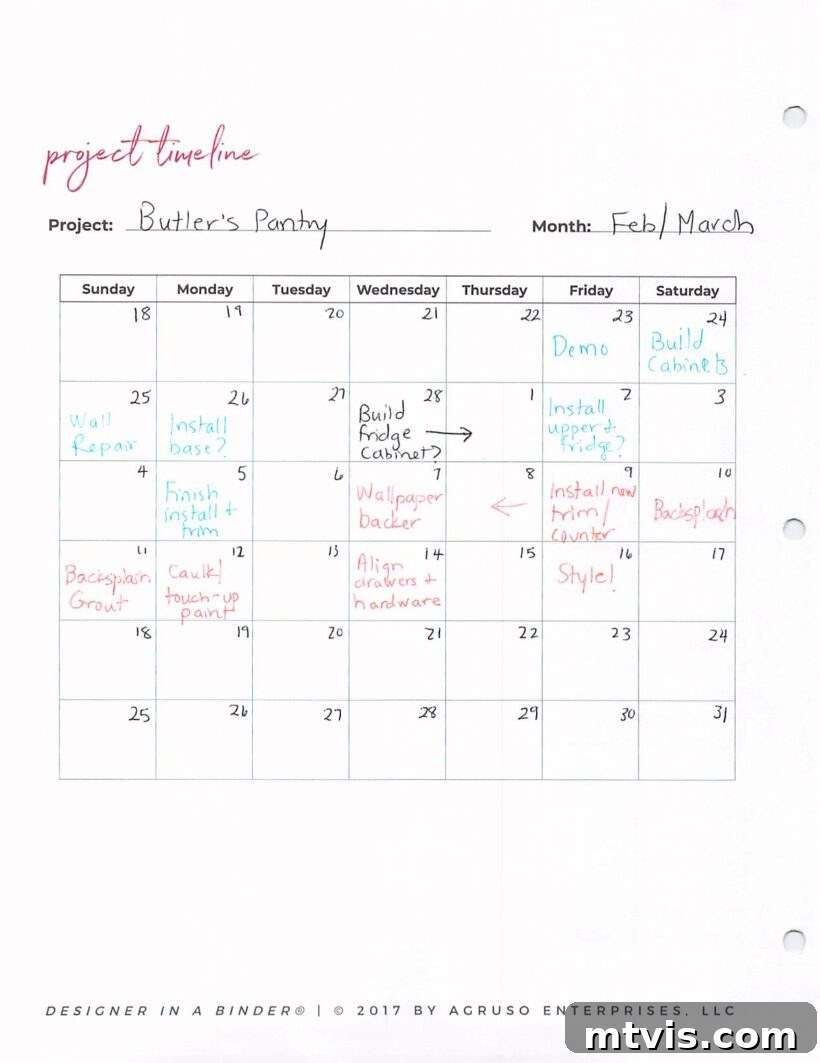 project timeline
Project: Butler's Pantry Month: Feb/March
Sunday Monday Tuesday Wednesday Thursday Friday Saturday
18 19 20 21 22 23 24
Demo
Build
Cabinets
25 26 27 28 1 2 3
Wall
Repair
Install
base?
Build
fridge
cabinet?
Install
upper +
fridge?
4 5 6 7 8 9 10
Finish
install +
trim
Wallpaper
backer
Install new
trim/
counter
Backsplash
11 12 13 14 15 16 17
Backsplash
Grout
Caulk/
touch-up
paint
Align
drawers +
hardware
Style!
18 19 20 21 22 23 24
25 26 27 28 29 30 31
DESIGNER IN A BINDER® | © 2017 BY AGRUSO ENTERPRISES, LLC
mtvis.com